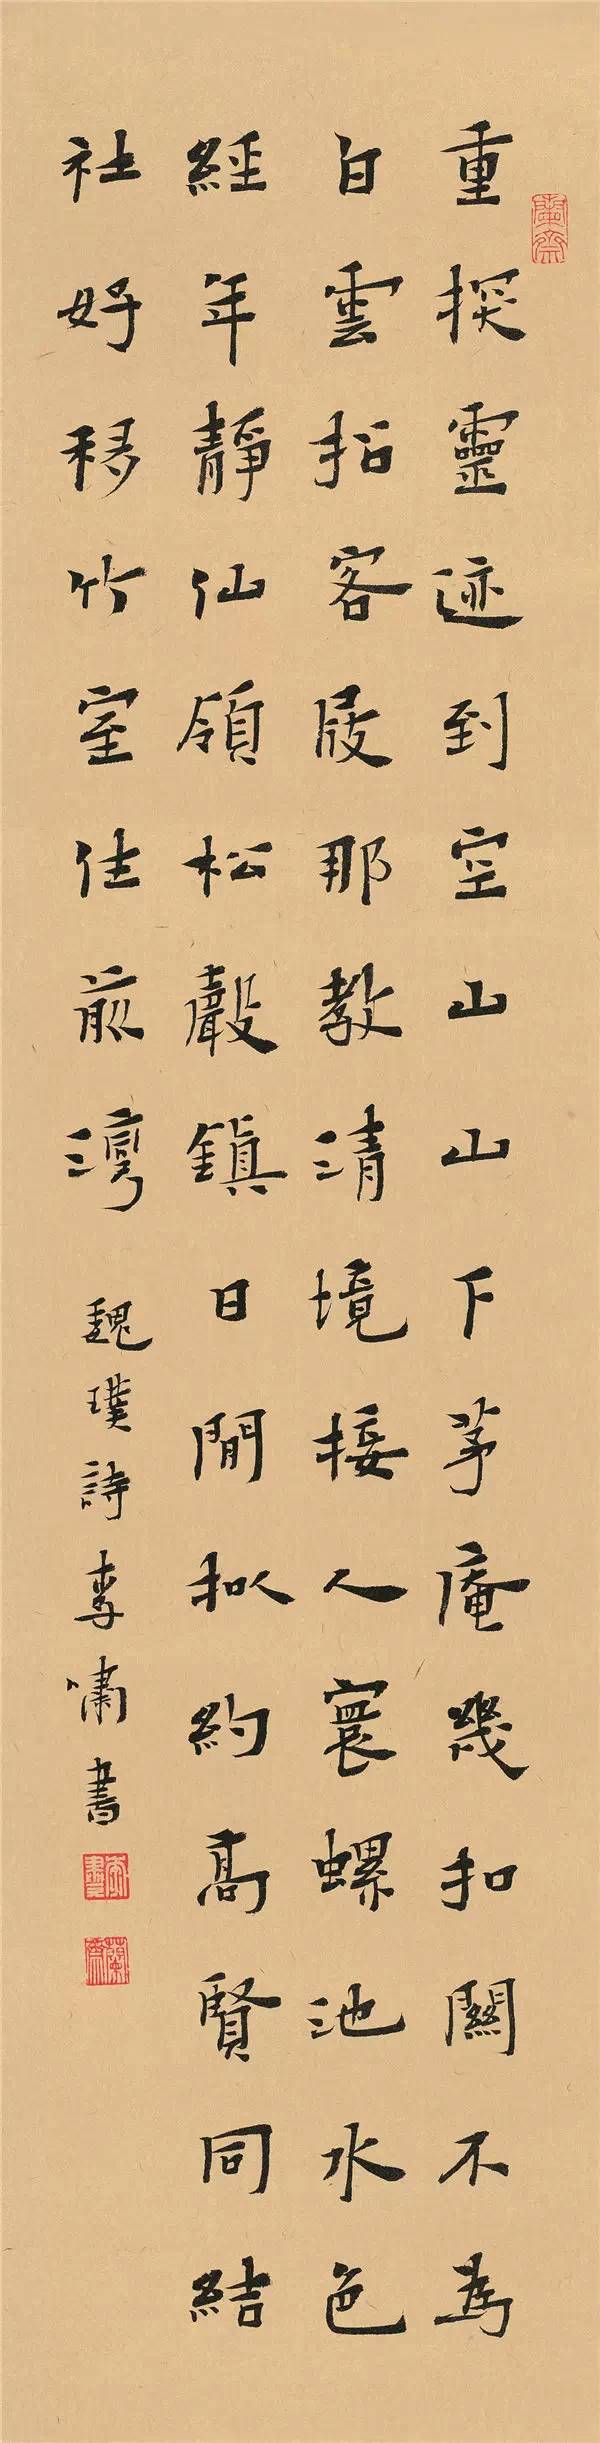 重探靈迹到空山山下茅庵幾扣關不為
白雲招客屐那教清境接人寰螺池水色
經年靜仙領松聲鎮日閒拟約高賢同結
社好移竹室住前灣
魏璞詩李嘯書